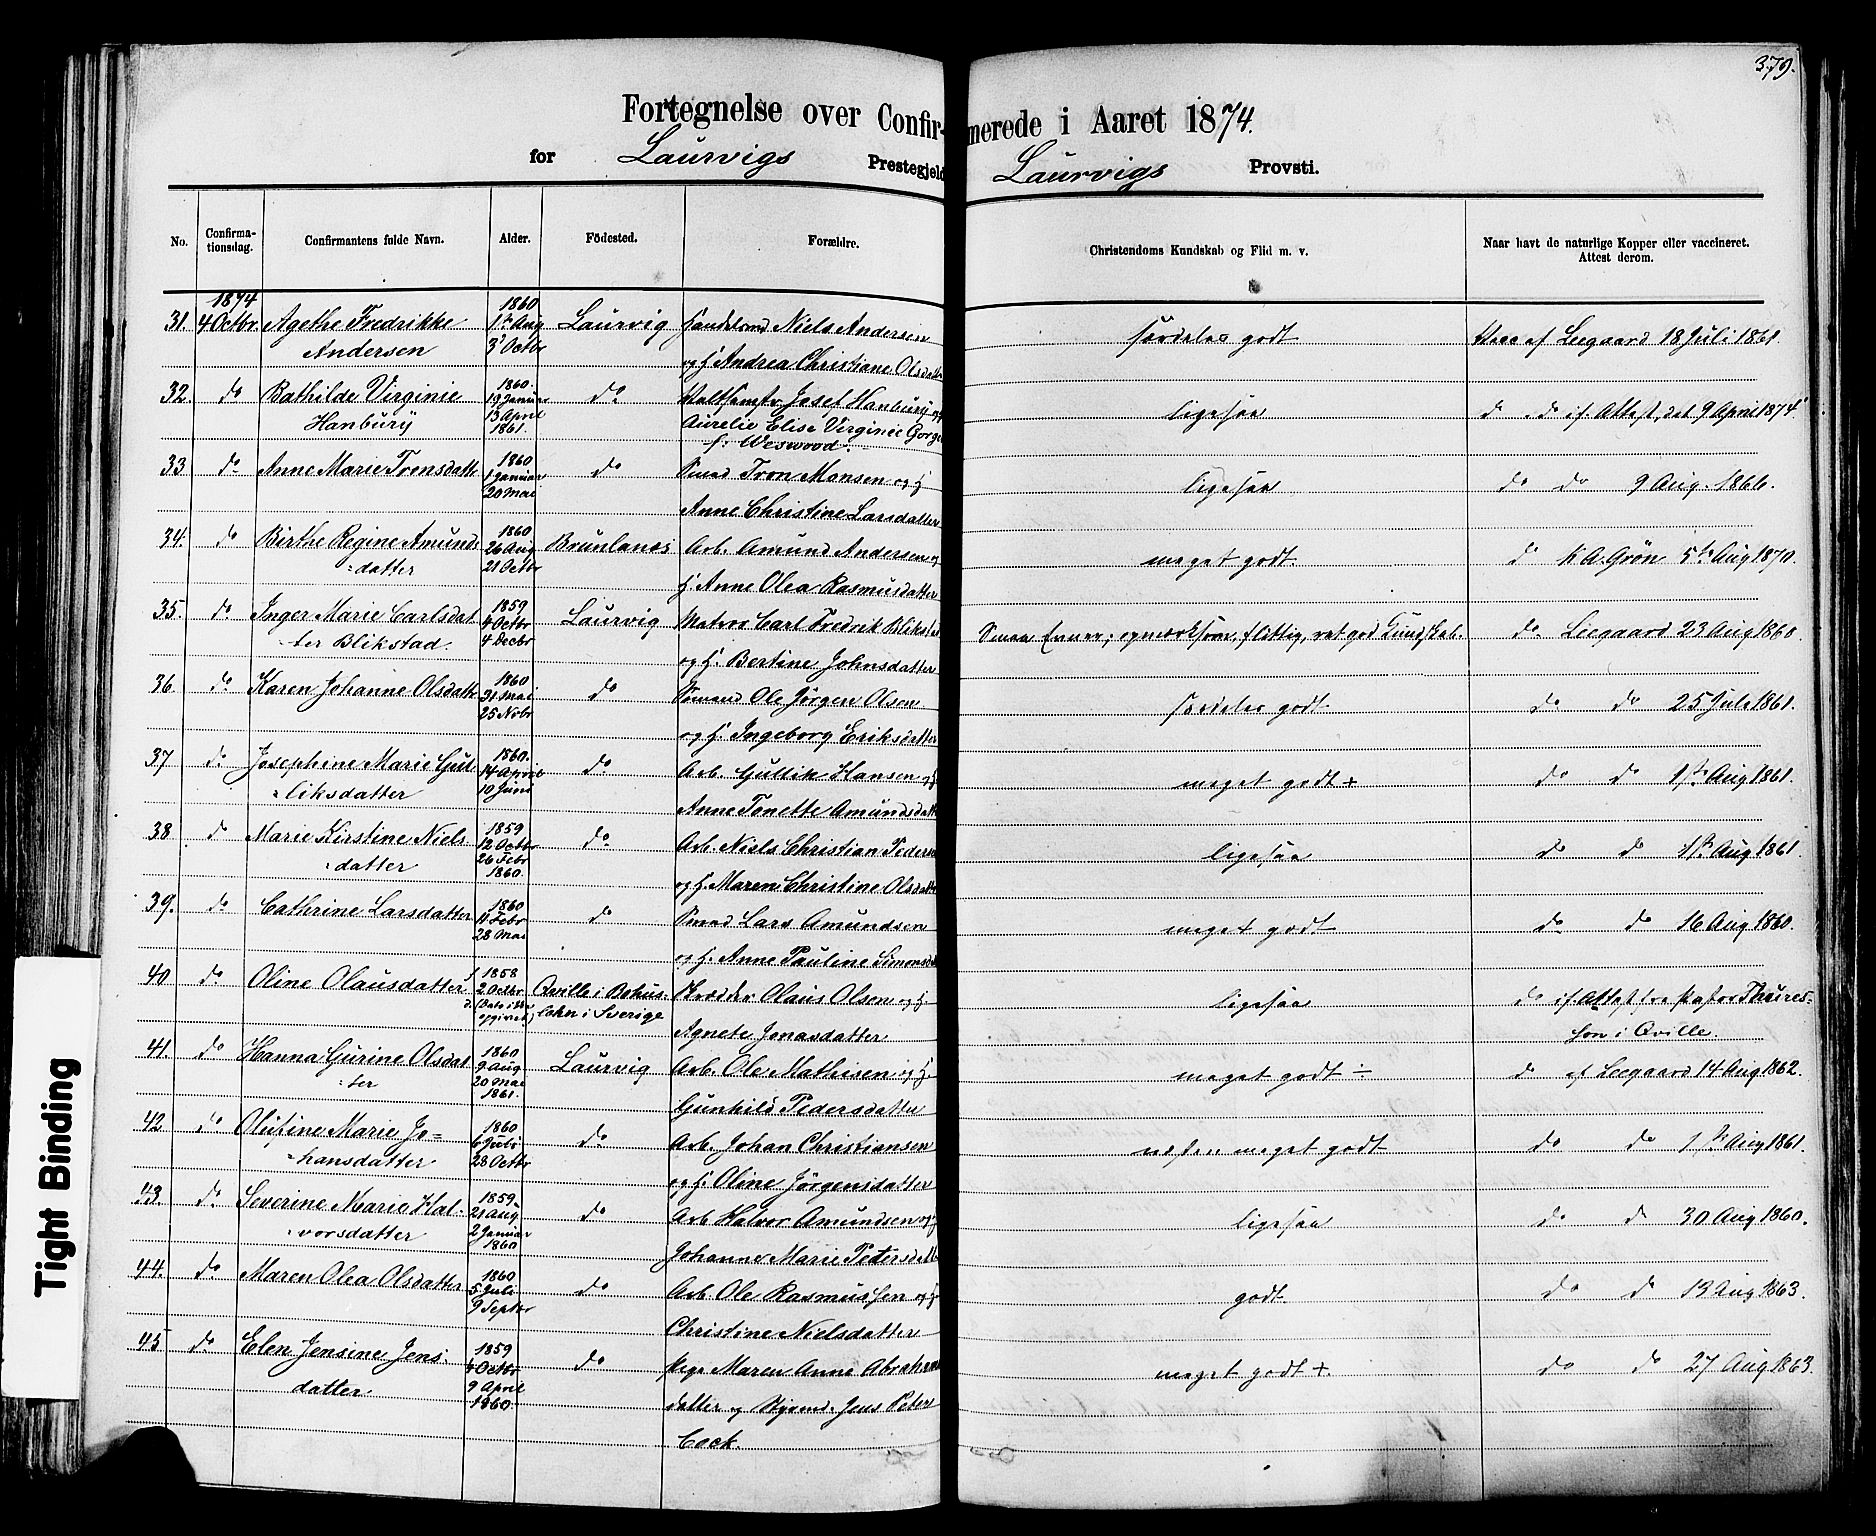 379.
Fortegnelse over Confirmerede i Aaret 1874.
for Laurvigs Prestegjeld Laurvigs Provsti.
No. Confirmationsdag. Confirmantens fulde Navn. Alder. Födested. Forældre. Christendoms Kundskab og Flid m. v. Naar havt de naturlige Kopper eller vaccineret. Attest derom.
1874 1860
31. 4 Octbr. Agethe Fredrikke 1ste Aug Laurvig Niels Andersen særdeles godt Vacc af Leegaard 18 Juli 1861.
Andersen 3 Octbr og H. Andrea Christiane Olsdatt
32. do Bathilde Virginie 1860. 19 Januar do Josef Hanbury og ligesaa do do if. Attest, dat 9 April 1874
Hanbury 13 April 1861. Aurelie Elise Verginie
f. Weswood.
33 do Anne Marie Tronsdatt 1860 1 Januar do Smed Tron Monsen og H ligesaa do do 9 Aug. 1866.
20 Mai Anne Christine Larsdatter
34. do Birthe Regine Amunds 1860 26 Aug Brunlanes Arb. Amund Andersen og meget godt. do K A. Grön 5te Aug 1870.
datter 21 Octbr H. Anne Olea Rasmusdatter
35. do Inger Marie Carlsdat 1859 4 Octbr Laurvig Matros Carl Fredrik Blikstad Smaa Evner; opmærksom, flittig, ret god Kundskab. do Leegaard 23 Aug 1860
ter Blikstad. 4 Decbr og H. Bertine Johnsdatter
36. do Karen Johanne Olsdatt 1860 31 Mai do Sömand Ole Jörgen Olsen særdeles godt do do 25 Juli 1861.
25 Nobr og H. Ingeborg Eriksdatter
37 do Josephine Marie Gul 1860. 14 April do Arb. Gullik Hansen og H meget godt + do do 1ste Aug 1861.
liksdatter 10 Juni Anne Tonette Amundsdatt
38 do Marie Kirstine Niels 1859 12 Octbr do Arb. Niels Christian Peders ligesaa do do 1ste Aug 1861.
datter 26 Febr 1860. og H. Maren Christine Olsdatt
39. do Cathrine Larsdatter 1860 11 Febr do Smed Lars Amundsen meget godt do do 16 Aug 1860.
28 Mai og H. Anne Pauline Simonsd
40 do Oline Olausdatter f. 1858 2 Octbr Qville i Bohus- Skrædder Olaus Olsen og H ligesaa do if. Attest fra Pastor Thures-
d. (Dato ikke opgivet) lehn i Sverige Agnete Jonasdatter son i Qville.
41. do Hanna Gurine Olsdat 1860 9 Aug Laurvig Arb. Ole Mathisen og H. meget godt ÷ do af Leegaard 14 Aug 1862.
ter 20 Mai 1861. Gunhild Pedersdatter
42 do Olufine Marie Jo= 1860 6 Juli do Arb. Johan Christiansen næsten meget godt do do 1ste Aug 1861.
hansdatter 28 Octbr og H. Oline Jörgensdatter
43. do Severine Marie Hal- 1859. 21 Aug do Arb Halvor Amundsen og H ligesaa do do 30 Aug 1860.
vorsdatter 2 Januar 1860 Johanne Marie Petersdatt
44. do Maren Olea Olsdatter 1860 5 Juli do Arb. Ole Rasmussen og H godt. do do 13 Aug 1863.
9 Septbr Christine Nielsdatter
45 do Elen Jensine Jens- 1859 4 Octbr do Pige Maren Anne Abraham meget godt +. do do 27 Aug 1863.
datter 9 April 1860. datter og Styrmd. Jens Peter
Cock.
Tight Binding